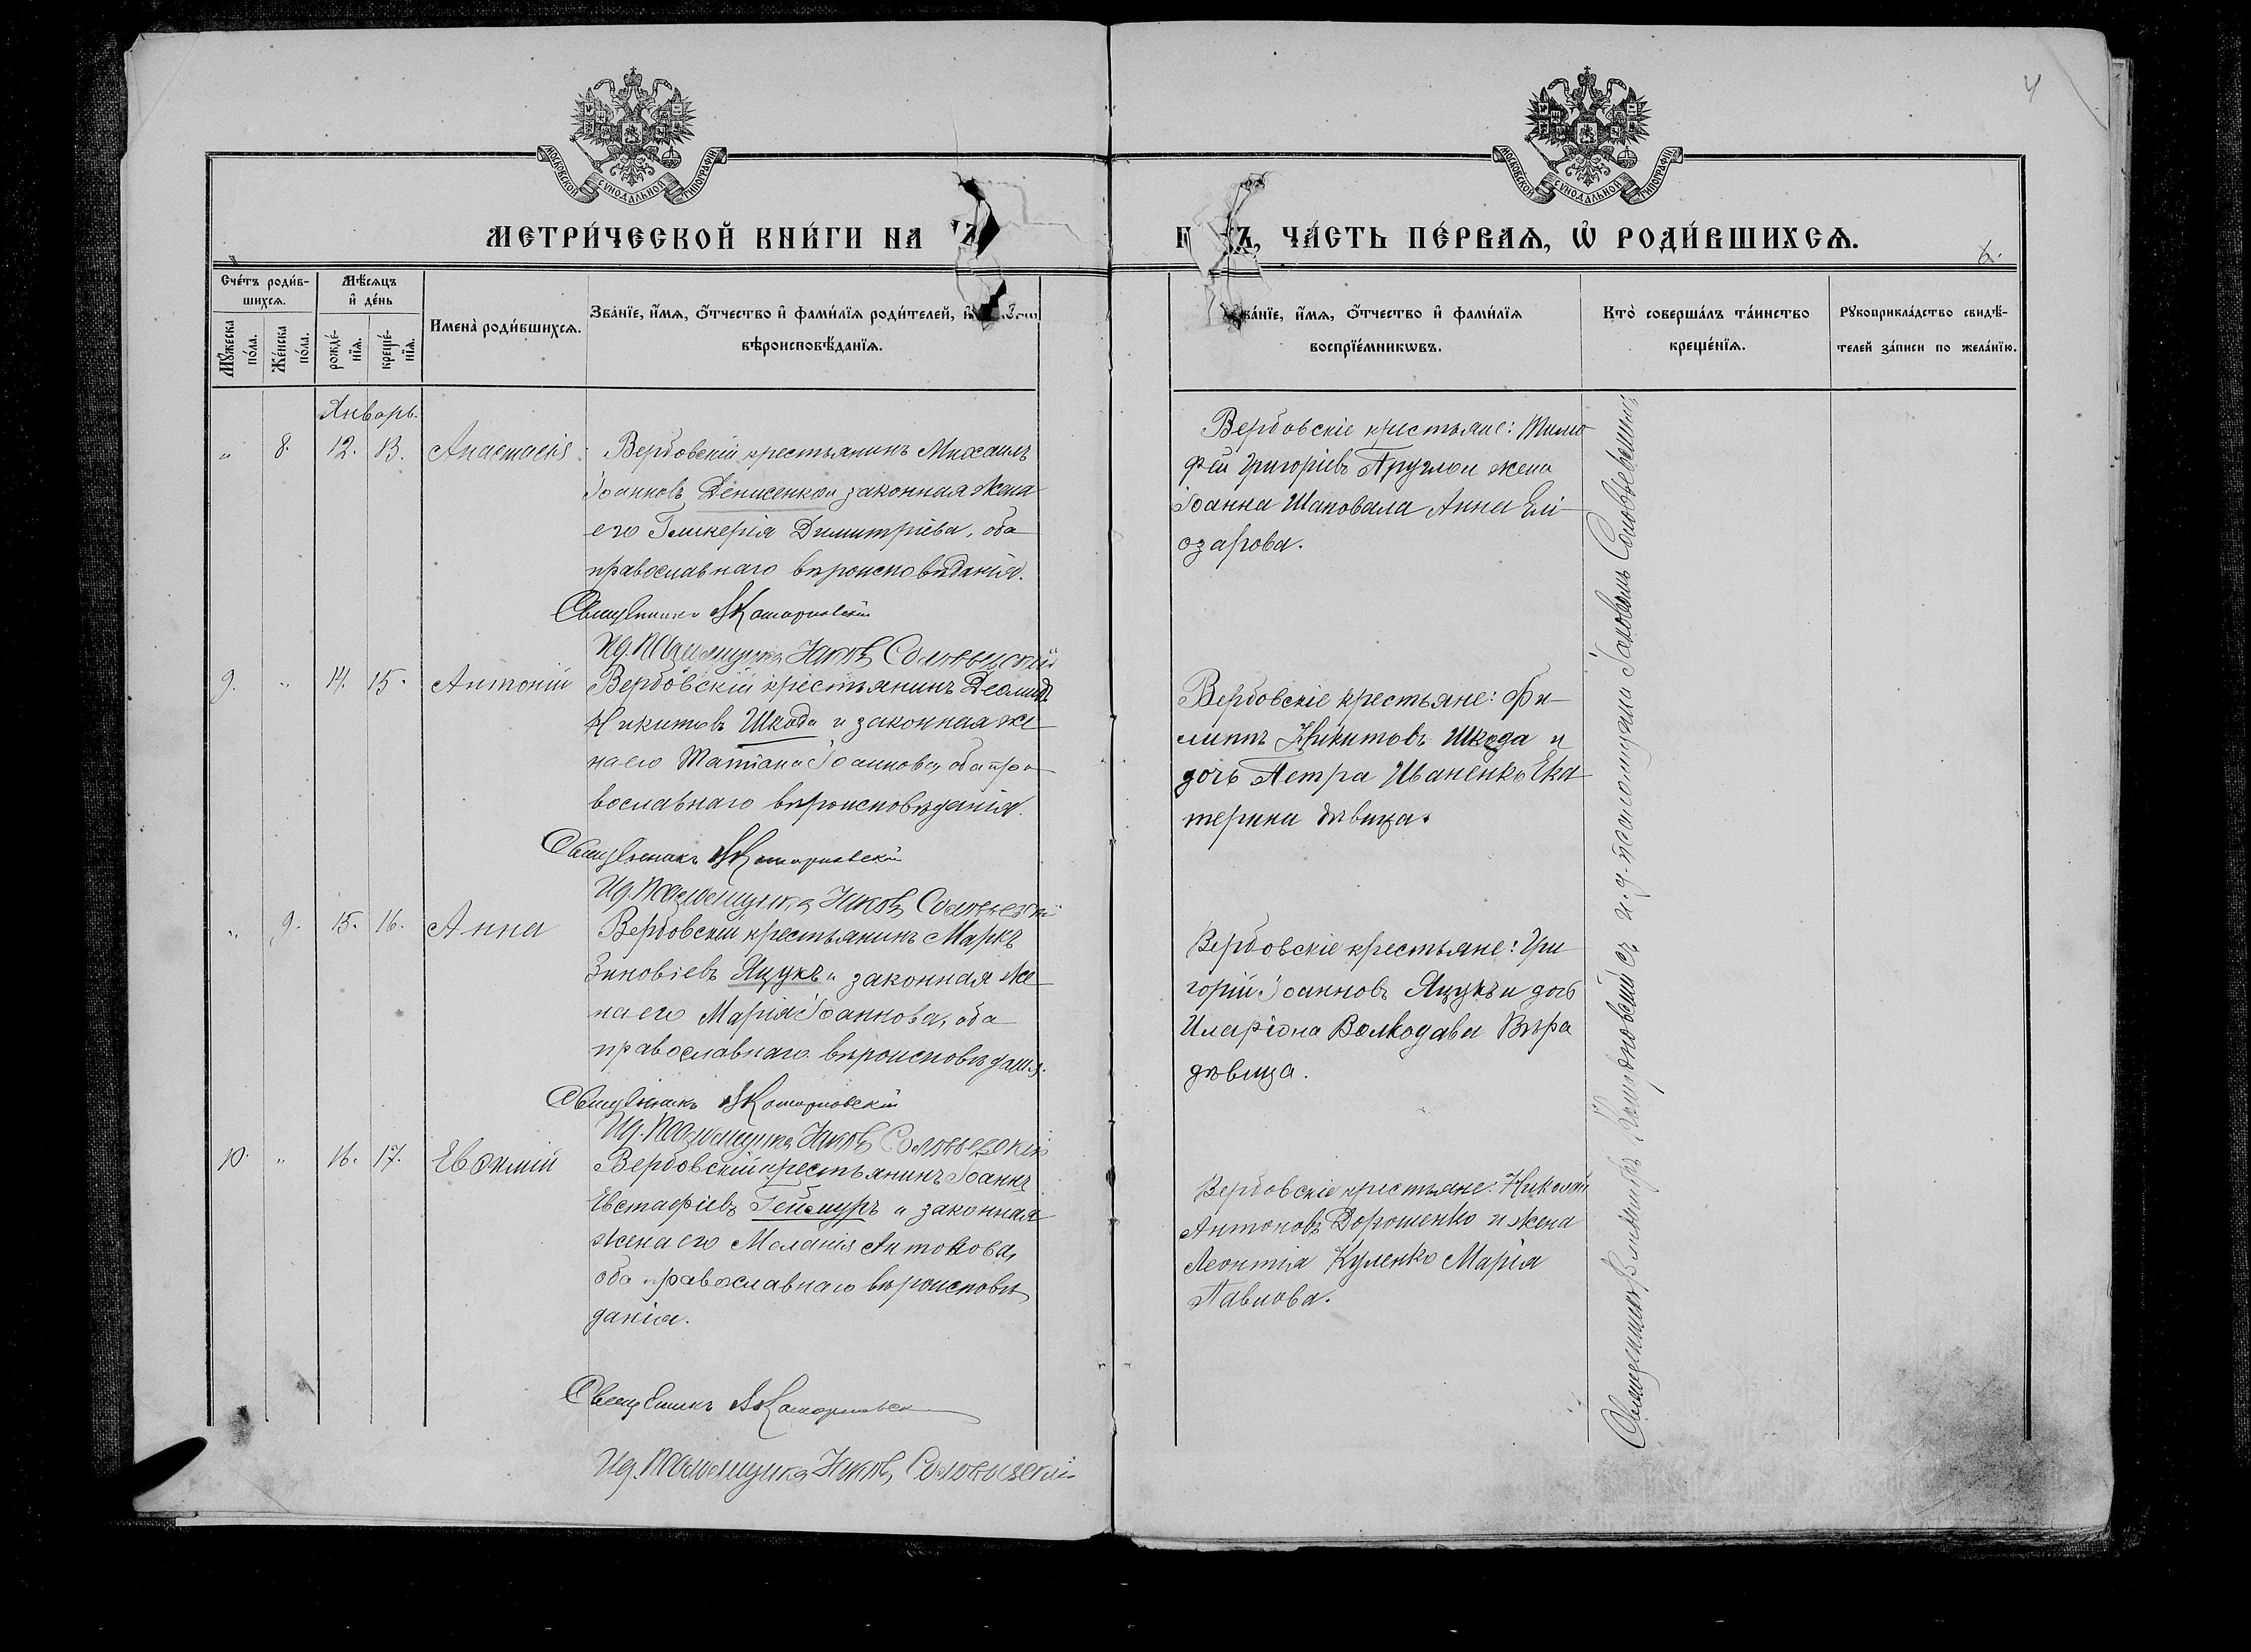 4
МОСКОВСКОЙ СУНОДАЛЬНОЙ ТИПОГРАФІИ
МОСКОВСКОЙ СУНОДАЛЬНОЙ ТИПОГРАФІИ
МЕТРИ́ЧЕСКОЙ КНИ́ГИ НА
ЧА́СТЬ ПЕ́РВАѦ, Ѡ РОДИ́ВШИХСѦ.
Сче́тъ роди́в-
шихсѧ.
Мꙋ́жеска
по́ла.
Же́нска
по́ла.
Мѣ́сѧцъ
и҆ де́нь
рожде́-
нїѧ.
креще́-
нїѧ.
Имена̀ роди́вшихсѧ.
Зва́нїе, и҆́мѧ, ѻ҆́тчество и҆ фами́лїѧ роди́телей,
вѣроисповѣ́данїѧ.
и҆́мѧ, ѻ҆́тчество и҆ фами́лїѧ
воспрїе́мникѡвъ.
Кто̀ соверша́лъ та́инство
креще́нїѧ.
Рꙋкоприкла́дство свидѣ́-
телей за́писи по жела́нїю.
Январь.
" 8. 12. 13. Анастасія
Вербовскій крестьянинъ Михаилъ
Іоанновъ Денисенко и законная жена
его Гликерія Димитріева, оба
православнаго вѣроисповѣданія.
Священникъ
Ид. Псаломщика Іаковъ
Вербовскіе крестьяне: Тимо-
фей Григоріевъ и жена
Іоанна Шаповала Анна Елі-
озарова.
9. " 14. 15. Антоній
Вербовскій крестьянинъ Деомидъ
Никитовъ Шкода и законная же-
на его Татіана Іоаннова, оба пра-
вославнаго вѣроисповѣданія.
Священникъ
Ид. Псаломщика Іаковъ
Вербовскіе крестьяне: Фи-
липпъ Никитовъ Шкода и
дочь Петра Иваненко Ека-
терина дѣвица.
" 9. 15. 16. Анна
Вербовскій крестьянинъ Маркъ
Зиновіевъ Яцукъ и законная же-
на его Марія Іоаннова, оба
православнаго вѣроисповѣданія.
Священникъ
Ид. Псаломщика Іаковъ
Вербовскіе крестьяне: Гри-
горій Іоанновъ Яцукъ и дочь
Иларіона Волкодава Вѣра
дѣвица.
10. " 16. 17. Евѳимій
Вербовскій крестьянинъ Іоаннъ
Евстафіевъ Геймуръ и законная
жена его Меланія Антонова,
оба православнаго вѣроисповѣ-
данія.
Священникъ
Ид. Псаломщика Іаковъ
Вербовскіе крестьяне: Николай
Антоновъ Дорошенко и жена
Леонтія Куленко Марія
Павлова.
Священникъ съ и. д. псаломщика Іаковомъ